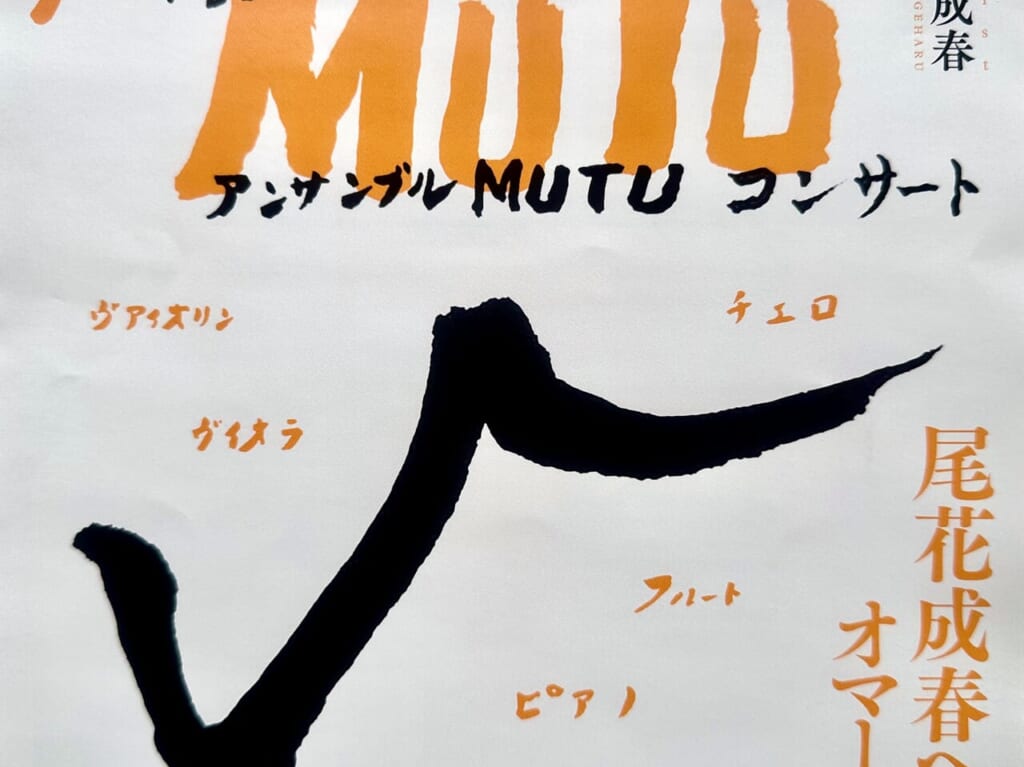 MUTU
成春
GEHARU
ist
アンサンブル MUTU コンサート
ヴァイオリン
チェロ
ヴィオラ
フルート
ピアノ
尾花成春へ
オマー